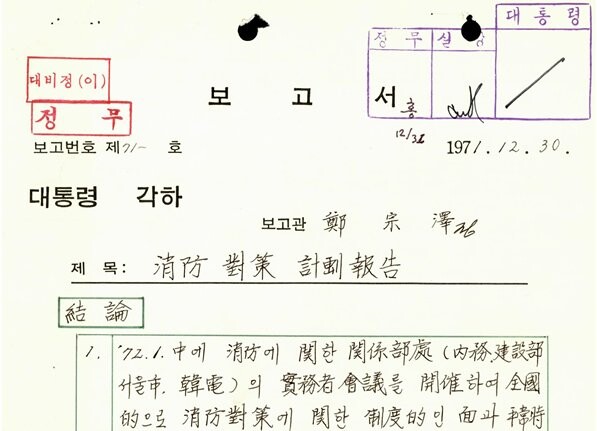 대통령
정무 실장
대비정(이)
보 고 서
홍
정 무
12/31
보고번호 제71- 호
1971. 12. 30.
대통령 각하
보고관 鄭 宗 澤
제 목: 消防 對策 計劃報告
結 論
1. '72.1. 中에 消防에 關한 關係部處(內務,建設部
서울市, 韓電)의 實務者會議를 開催하여 全國
的으로 消防對策에 關한 制度的인 面과 平常時